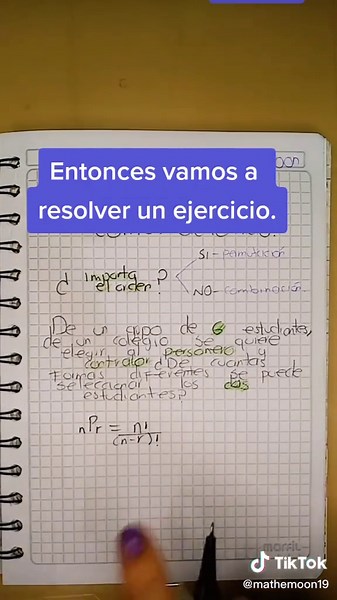 oon
Entonces vamos a
resolver un ejercicio.
¿ importa
el orden ?
SI - permutación
NO - combinación
De un grupo de 6 estudiantes,
de un colegio se quiere
elegir al personero y
contralor ¿De cuantas
formas diferentes se puede
seleccionar los dos
estudiantes?
nPr = n!
(n-r)!
TikTok
@mathemoon19